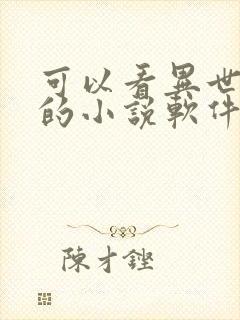 可以看異世
的小說軟件
陳才鏗